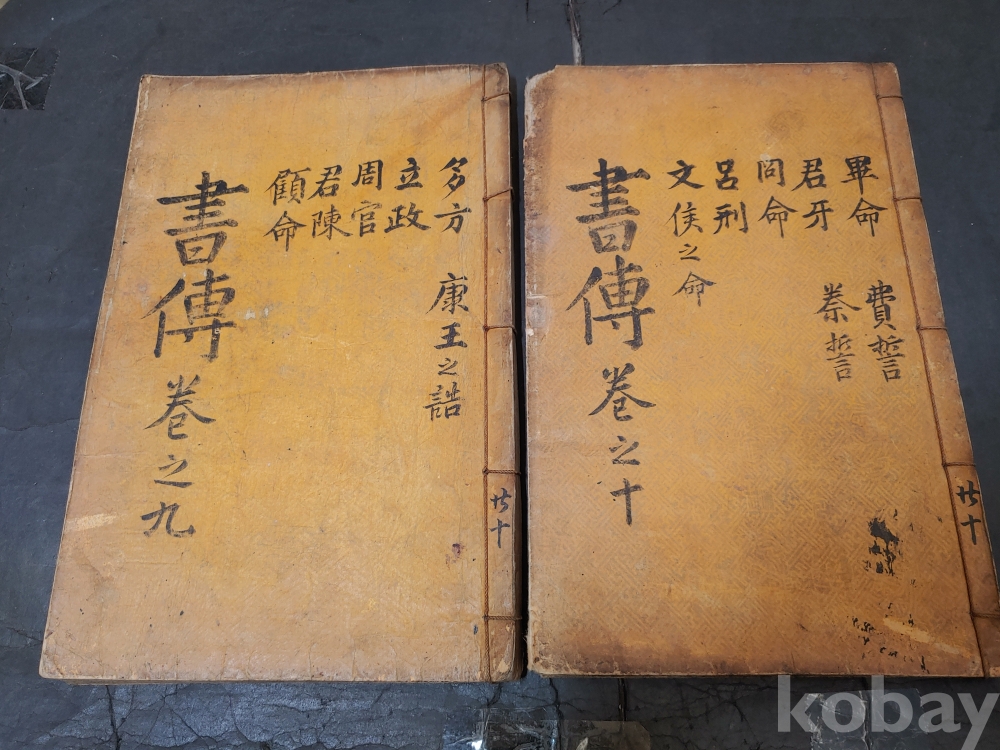 書傳卷之九
多方
立政
周官
君陳
顧命
康王之誥
共十
書傳卷之十
畢命
君牙
冏命
呂刑
文侯之命
費誓
秦誓
共十
kobay